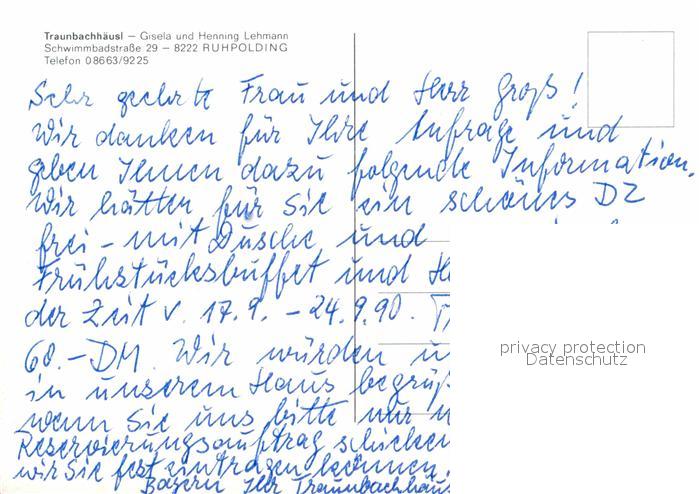 Traunbachhäusl — Gisela und Henning Lehmann
Schwimmbadstraße 29 – 8222 RUHPOLDING
Telefon 08663/9225
Sehr geehrte Frau und Herr Groß!
Wir danken für Ihre Anfrage und
geben Ihnen dazu folgende Information.
Wir hätten für Sie ein schönes DZ
frei - mit Dusche und
Frühstücksbuffet und
der Zeit v. 17.9. - 24.9.90.
68.- DM. Wir würden
in unserem Haus
wenn Sie uns bitte nur
Reservierungsauftrag schicken
wir Sie fest eintragen können.
Bayern Ihr Traunbachhäus
privacy protection
Datenschutz